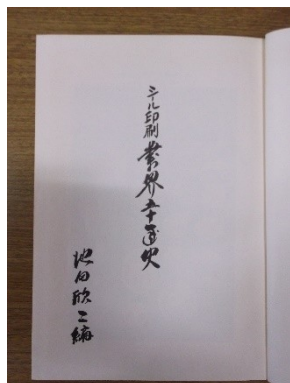 シール印刷業界五十年史
池田欣二編